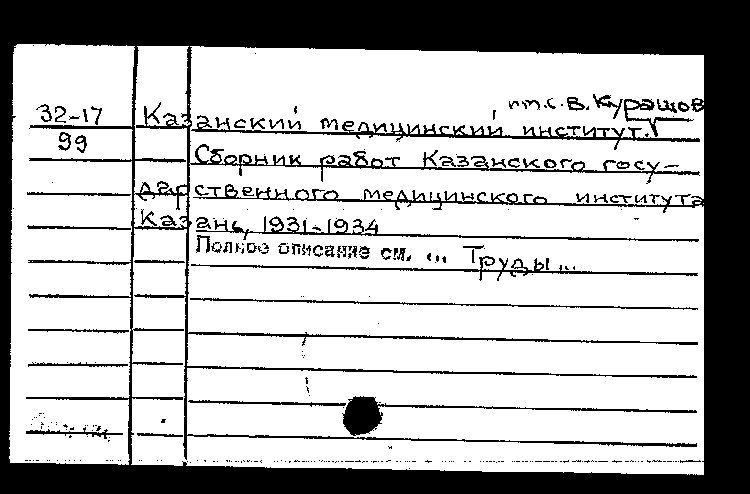 32-17
99
им. С. В. Курашов
Казанский медицинский институт.
Сборник работ Казанского госу-
дарственного медицинского института
Казань, 1931-1934
Полное описание см. "Труды"..